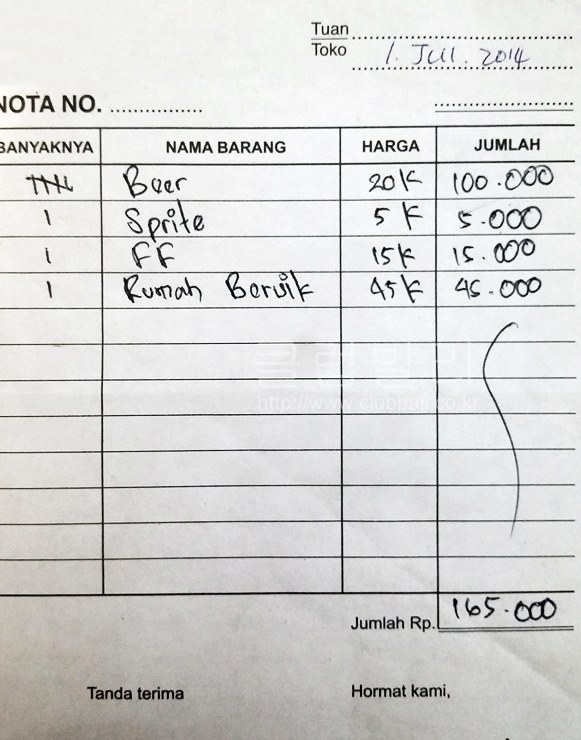 Tuan
Toko 1. JUL. 2014
NOTA NO.
BANYAKNYA NAMA BARANG HARGA JUMLAH
Beer 20K 100.000
1 Sprite 5K 5.000
1 FF 15K 15.000
1 Rumah Beruik 45K 45.000
클럽발리
http://www.clubbali.co.kr
Jumlah Rp. 165.000
Tanda terima Hormat kami,